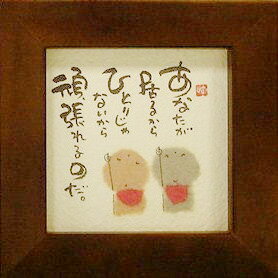 あなたが
居るから
ひとりじゃ
ないから
頑張れるのだ。